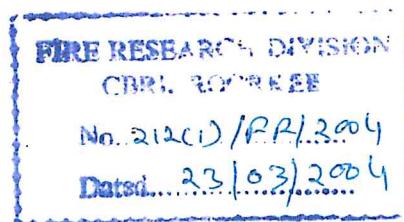 FIRE RESEARCH DIVISION
CBRI, ROORKEE
No. 212(1)/FR/2004
Dated. 23/03/2004